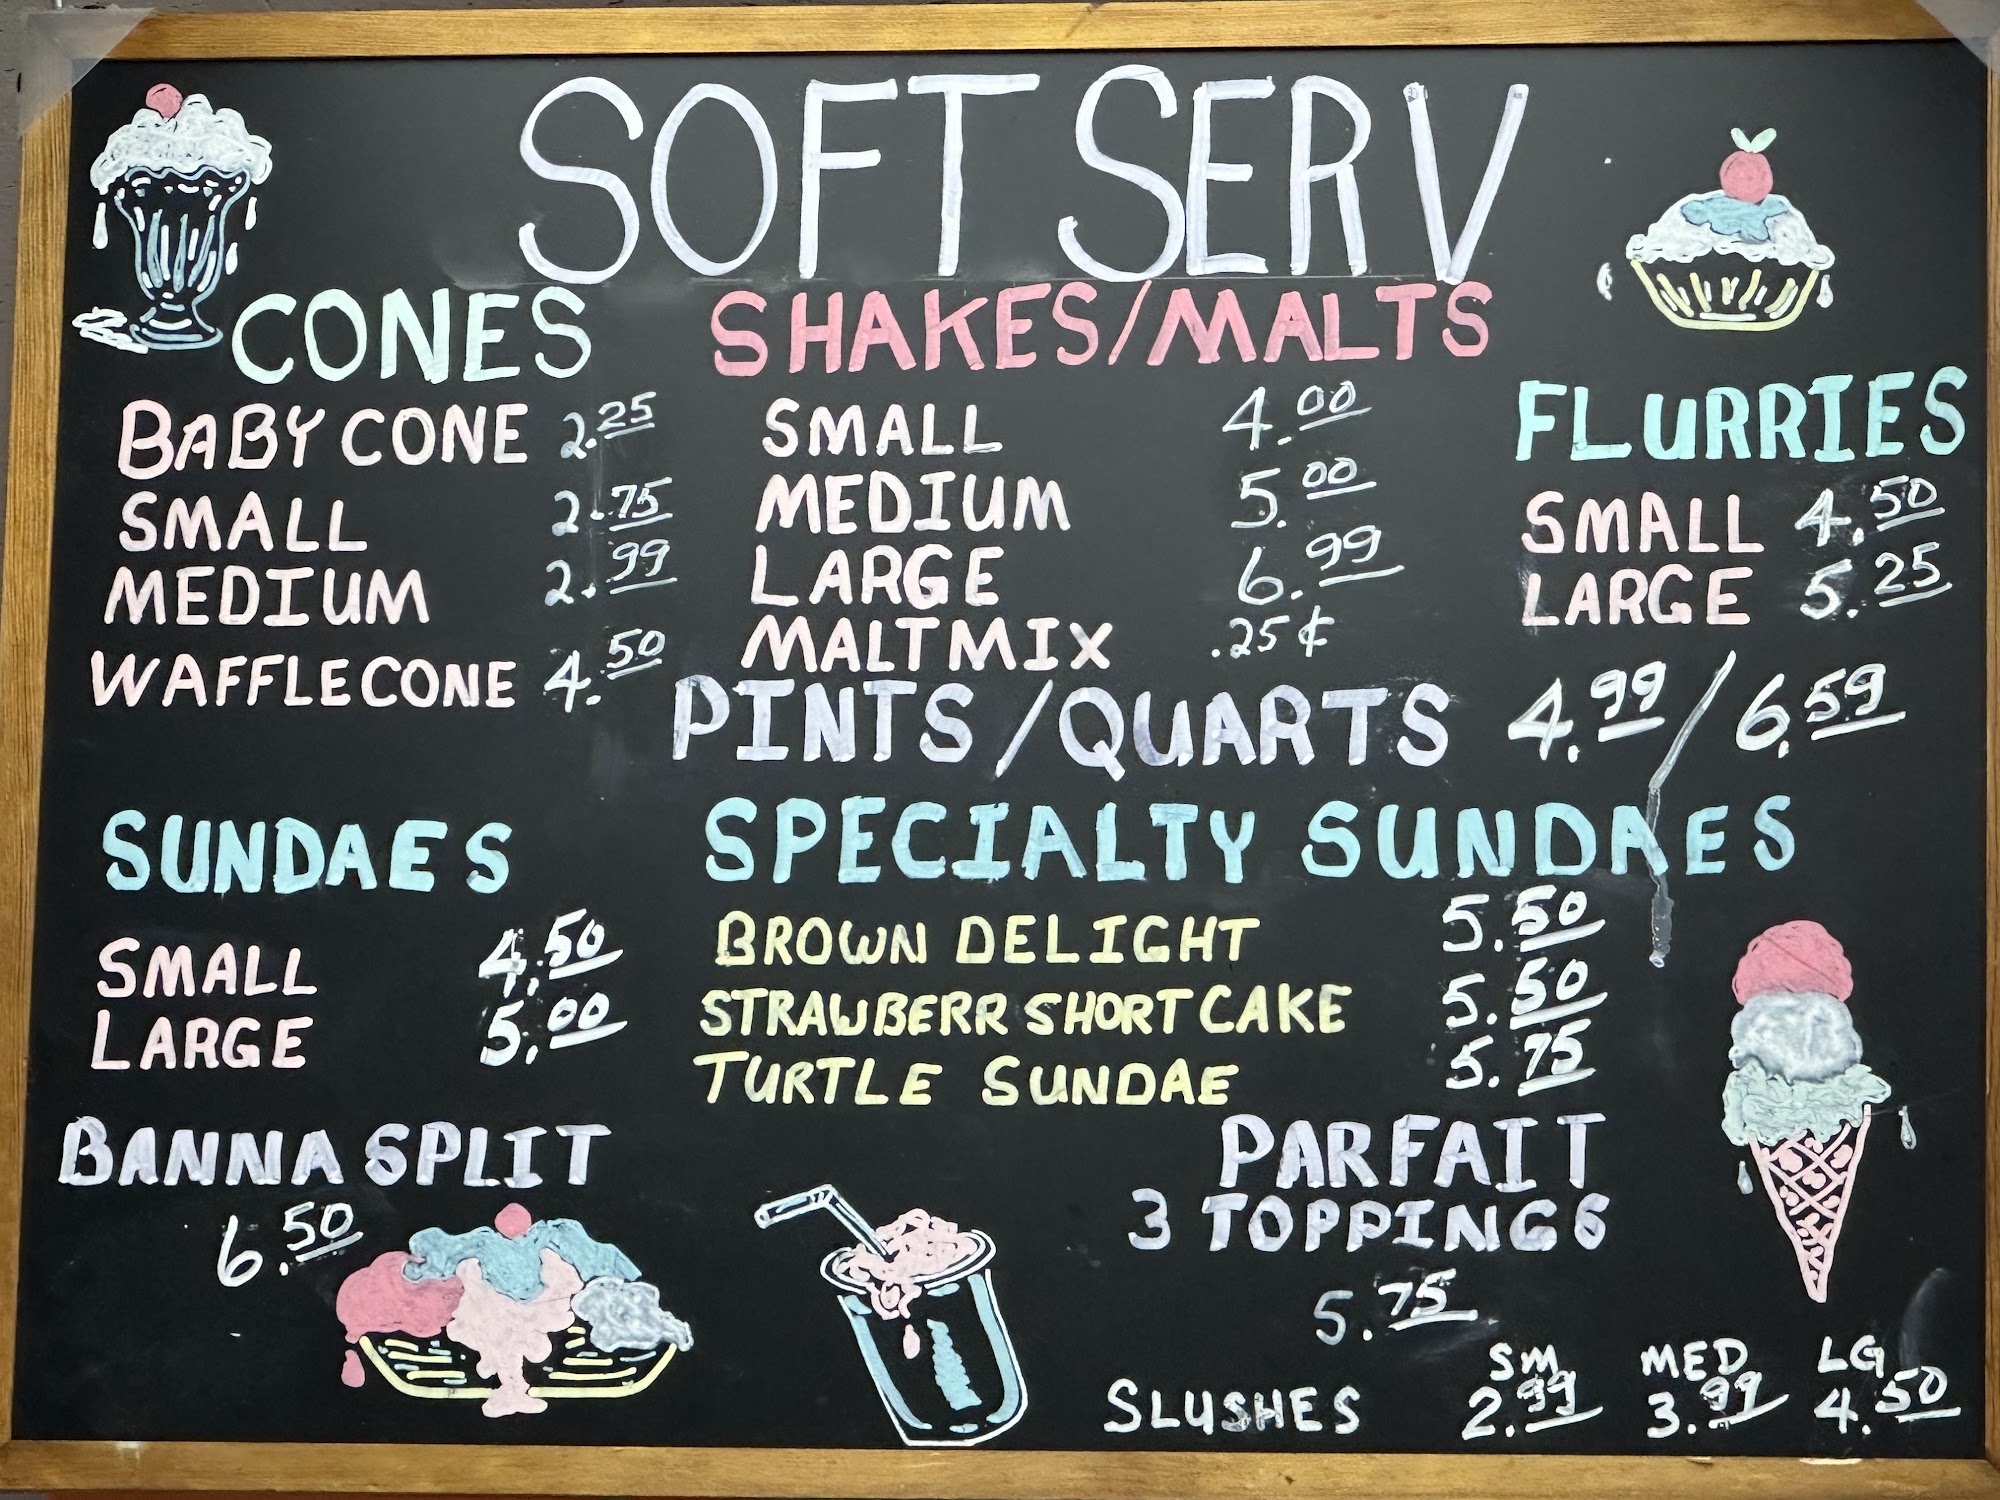 SOFT SERV
CONES
BABY CONE 2.25
SMALL 2.75
MEDIUM 2.99
WAFFLE CONE 4.50
SHAKES/MALTS
SMALL 4.00
MEDIUM 5.00
LARGE 6.99
MALT MIX .25¢
FLURRIES
SMALL 4.50
LARGE 5.25
PINTS/QUARTS 4.99/6.59
SUNDAES
SMALL 4.50
LARGE 5.00
SPECIALTY SUNDAES
BROWN DELIGHT 5.50
STRAWBERR SHORT CAKE 5.50
TURTLE SUNDAE 5.75
BANNA SPLIT
6.50
PARFAIT
3 TOPPINGS
5.75
SM MED LG
SLUSHES 2.99 3.99 4.50